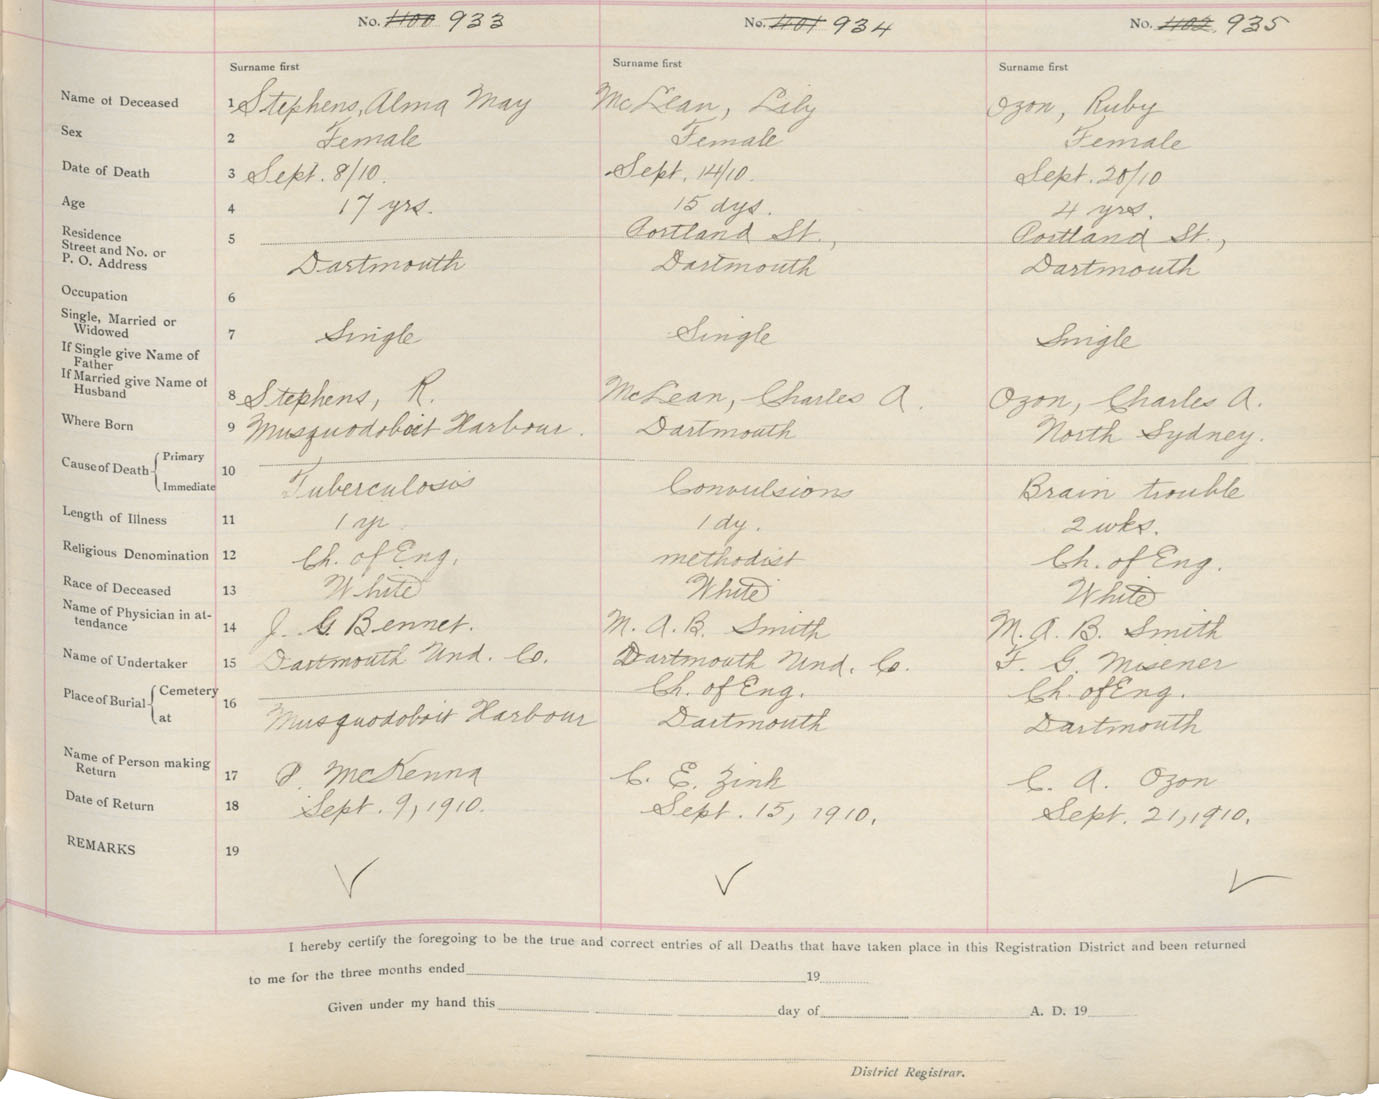 No. 400 933 No. 401 934 No. 402 935
Surname first Surname first Surname first
Name of Deceased 1 Stephens, Alma May McLean, Lily Ozon, Ruby
Sex 2 Female Female Female
Date of Death 3 Sept. 8/10. Sept. 14/10. Sept. 20/10
Age 4 17 yrs. 15 dys. 4 yrs.
Residence 5 Portland St., Portland St.,
Street and No. or
P. O. Address Dartmouth Dartmouth Dartmouth
Occupation 6
Single, Married or
Widowed 7 Single Single Single
If Single give Name of
Father
If Married give Name of
Husband 8 Stephens, R. McLean, Charles A. Ozon, Charles A.
Where Born 9 Musquodoboit Harbour. Dartmouth North Sydney.
Cause of Death Primary 10
Immediate Tuberculosis Convulsions Brain trouble
Length of Illness 11 1 yr. 1 dy. 2 wks.
Religious Denomination 12 Ch. of Eng. methodist Ch. of Eng.
Race of Deceased 13 White White White
Name of Physician in at-
tendance 14 J. G. Bennet. M. A. B. Smith M. A. B. Smith
Name of Undertaker 15 Dartmouth Und. Co. Dartmouth Und. Co. F. G. Misener
Place of Burial Cemetery 16 Ch. of Eng. Ch. of Eng.
at Musquodoboit Harbour Dartmouth Dartmouth
Name of Person making
Return 17 McKenna C. E. Zink C. A. Ozon
Date of Return 18 Sept. 9, 1910. Sept. 15, 1910. Sept. 21, 1910.
REMARKS 19
✓ ✓ ✓
I hereby certify the foregoing to be the true and correct entries of all Deaths that have taken place in this Registration District and been returned
to me for the three months ended 19
Given under my hand this day of A. D. 19
District Registrar.